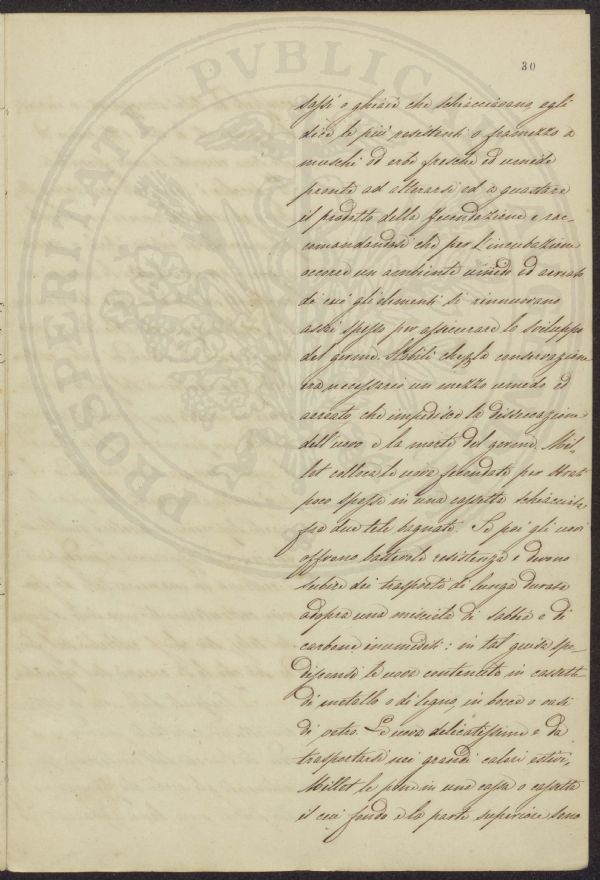 PROSPERITATI PVBLICAE
30
sassi o ghiaie che schiacciavano egli
dice le più resistenti o framezzo a
muschi ed erbe fresche ed umide
pronte ad alterarsi ed a guastare
il prodotto della fecondazione e rac
comandandosi che per l'incubazione
occorre un ambiente umido ed aereato
di cui gli elementi si rinnuovano
assai spesso per assicurare lo sviluppo
del germe. Stabilì che la conservazione
era necessario un mezzo umido ed
aereato che impedisce la disseccazione
dell'uovo e la morte del germe. Mil-
let colloca le uova fecondate per strati
poco spessi in una cassetta schiacciata
fra due tele bagnate. Se poi gli uovi
offrono bastevole resistenza e devono
subire dei trasporti di lunga durata
adopra una miscela di sabbia e di
carbone inumiditi: in tal guisa spe-
disconsi le uova contenute in cassette
di metallo o di legno, in bocce o vasi
di vetro. Le uova delicatissime e da
trasportarsi nei grandi calori estivi,
Millet le pone in una cassa o cassetta
il cui fondo e la parte superiore sono